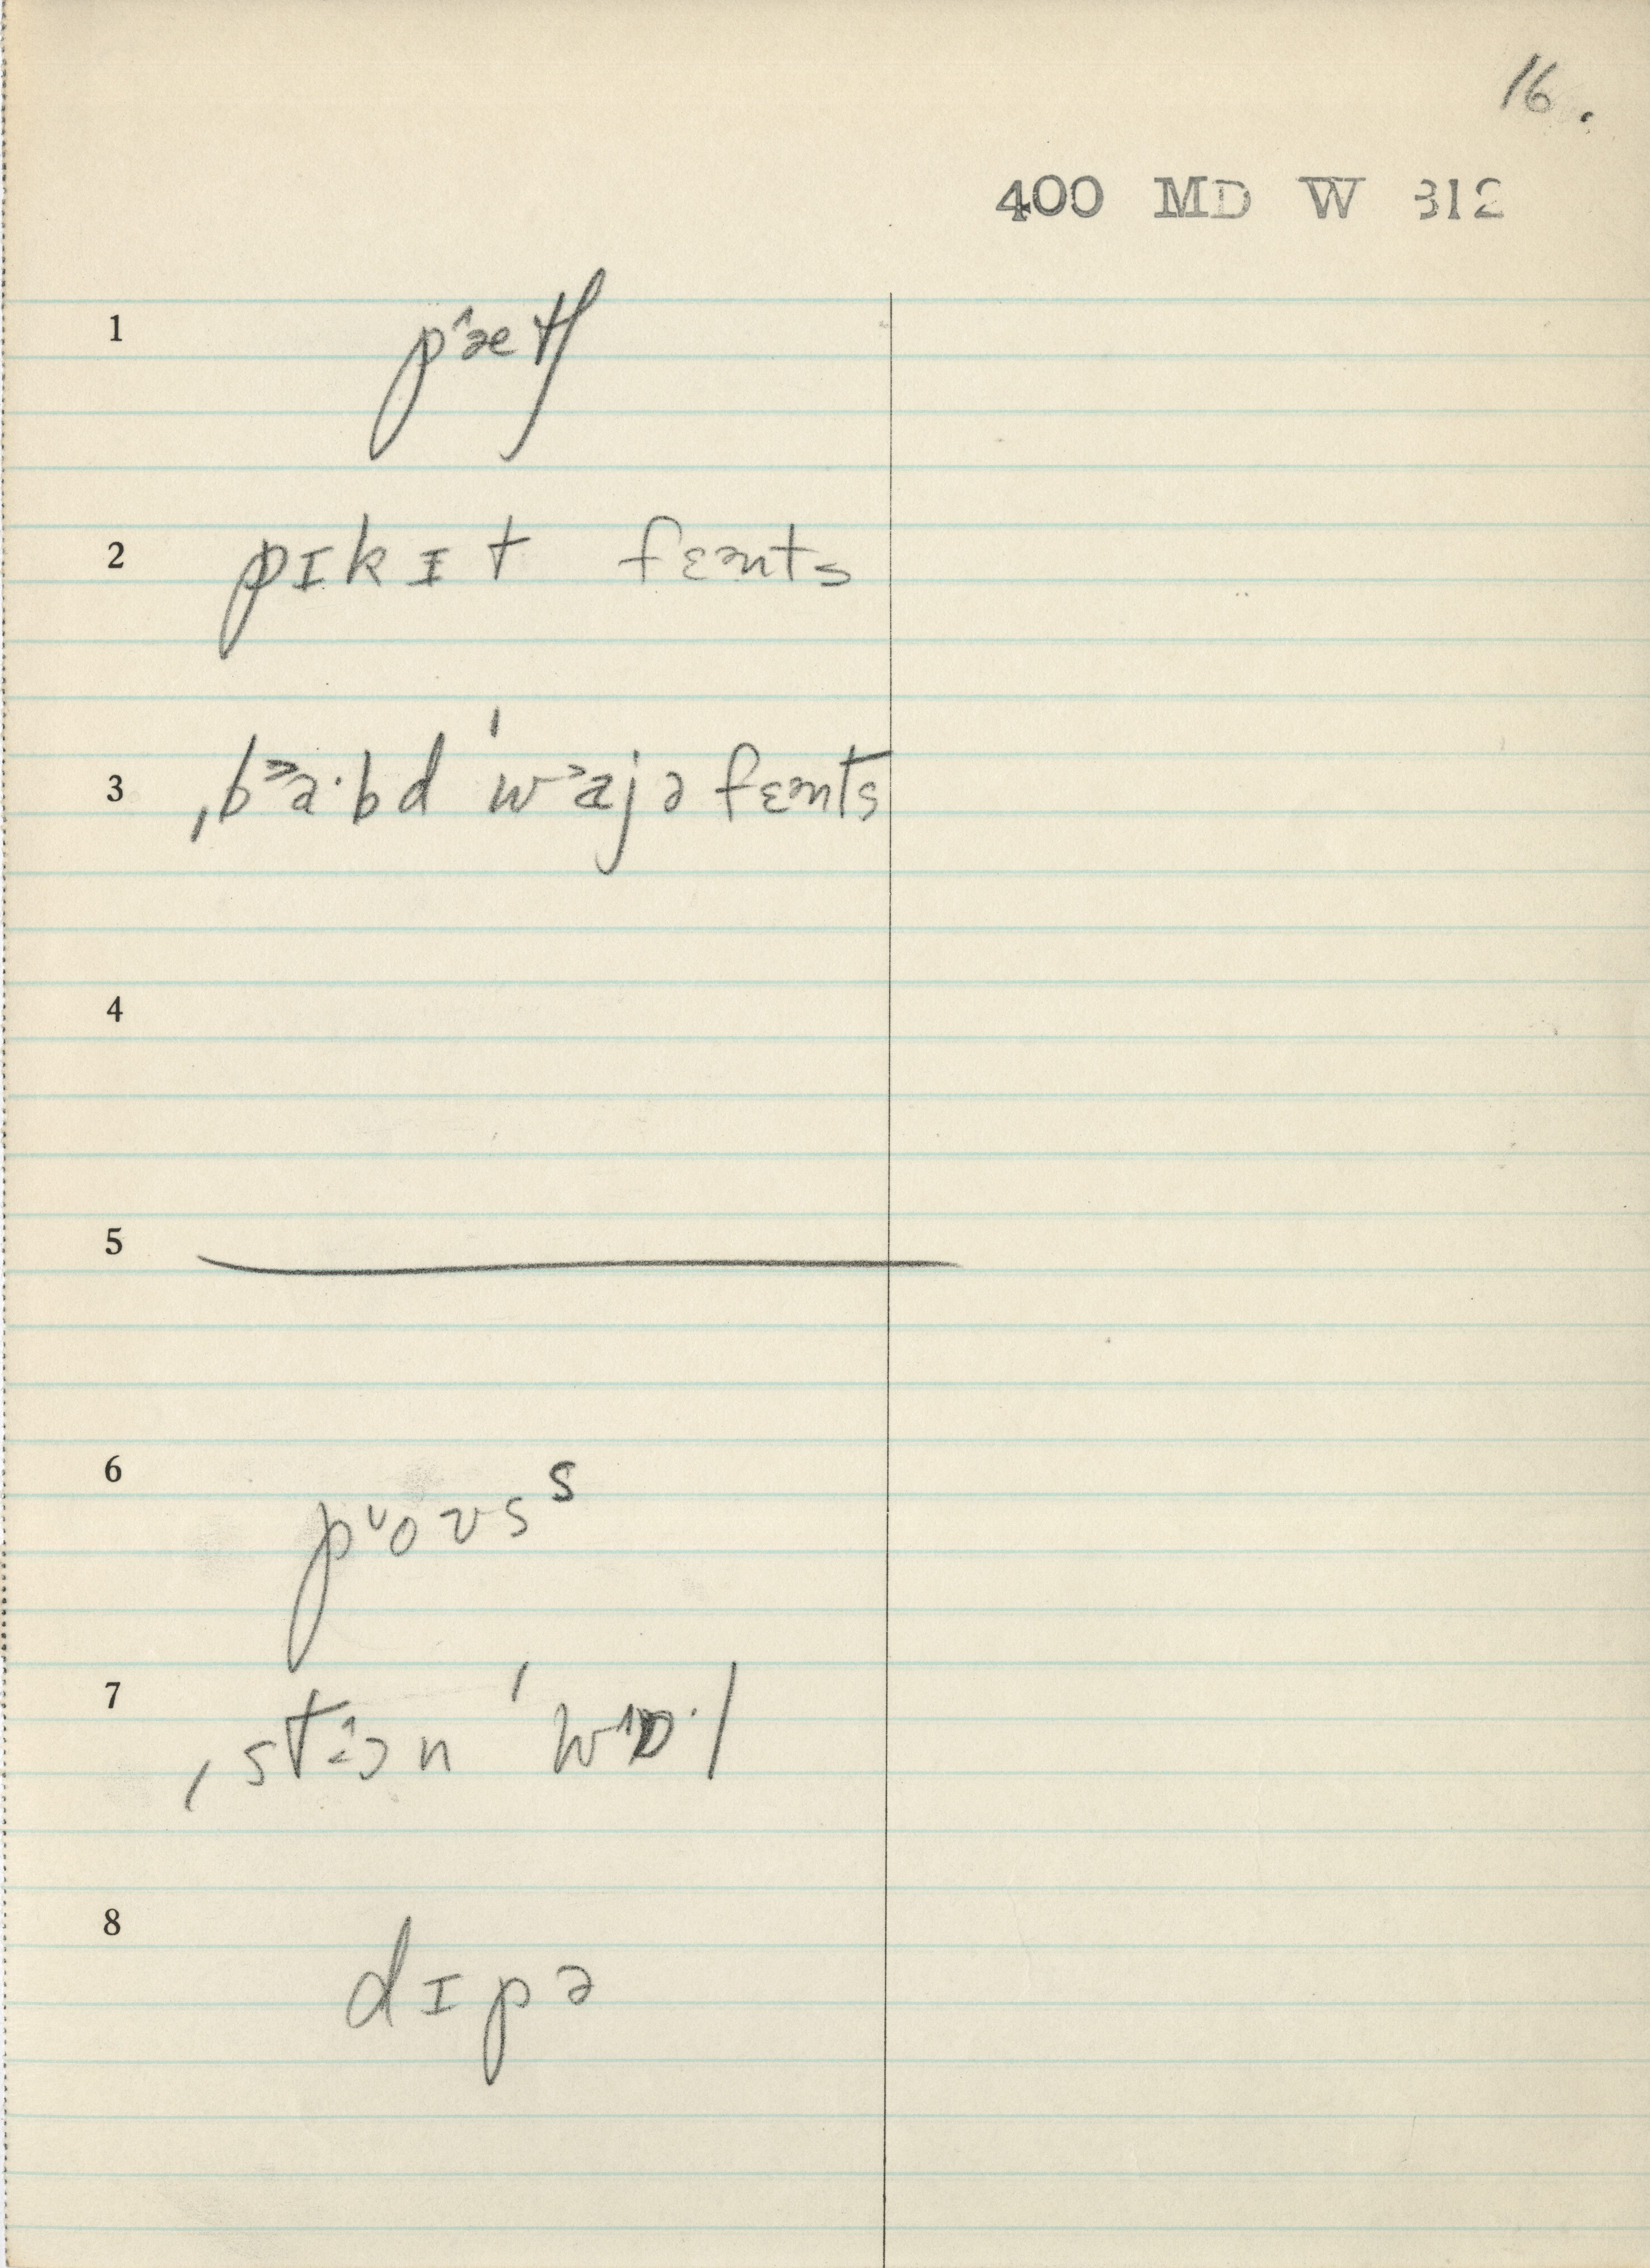 16.
400 MD W 312
1 pˆætʃ
2 pɪkɪt fɛənts
3 ˌb˃a·bd ˈw˃ajə fɛənts
4
5
6 p˅oʊsˢ
7 ˌst˄ɔn ˈw˄ɒ·l
8 dɪpə